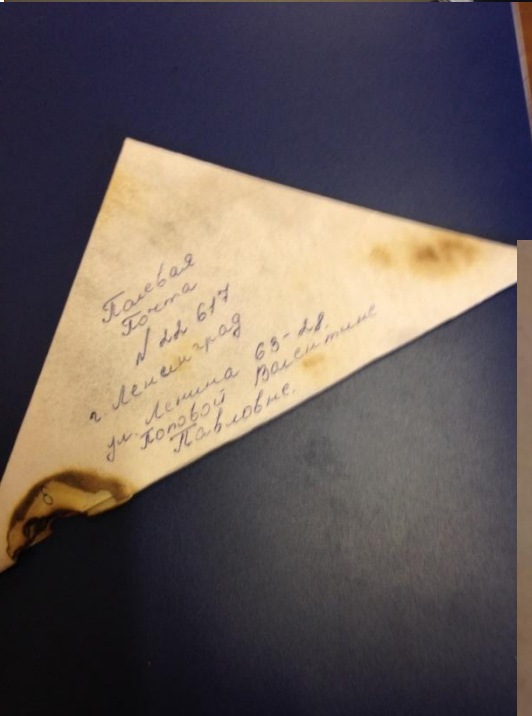 Полевая
Почта
N 22 617
г. Ленинград
ул. Ленина 63-28.
Поповой Валентине
Павловне.